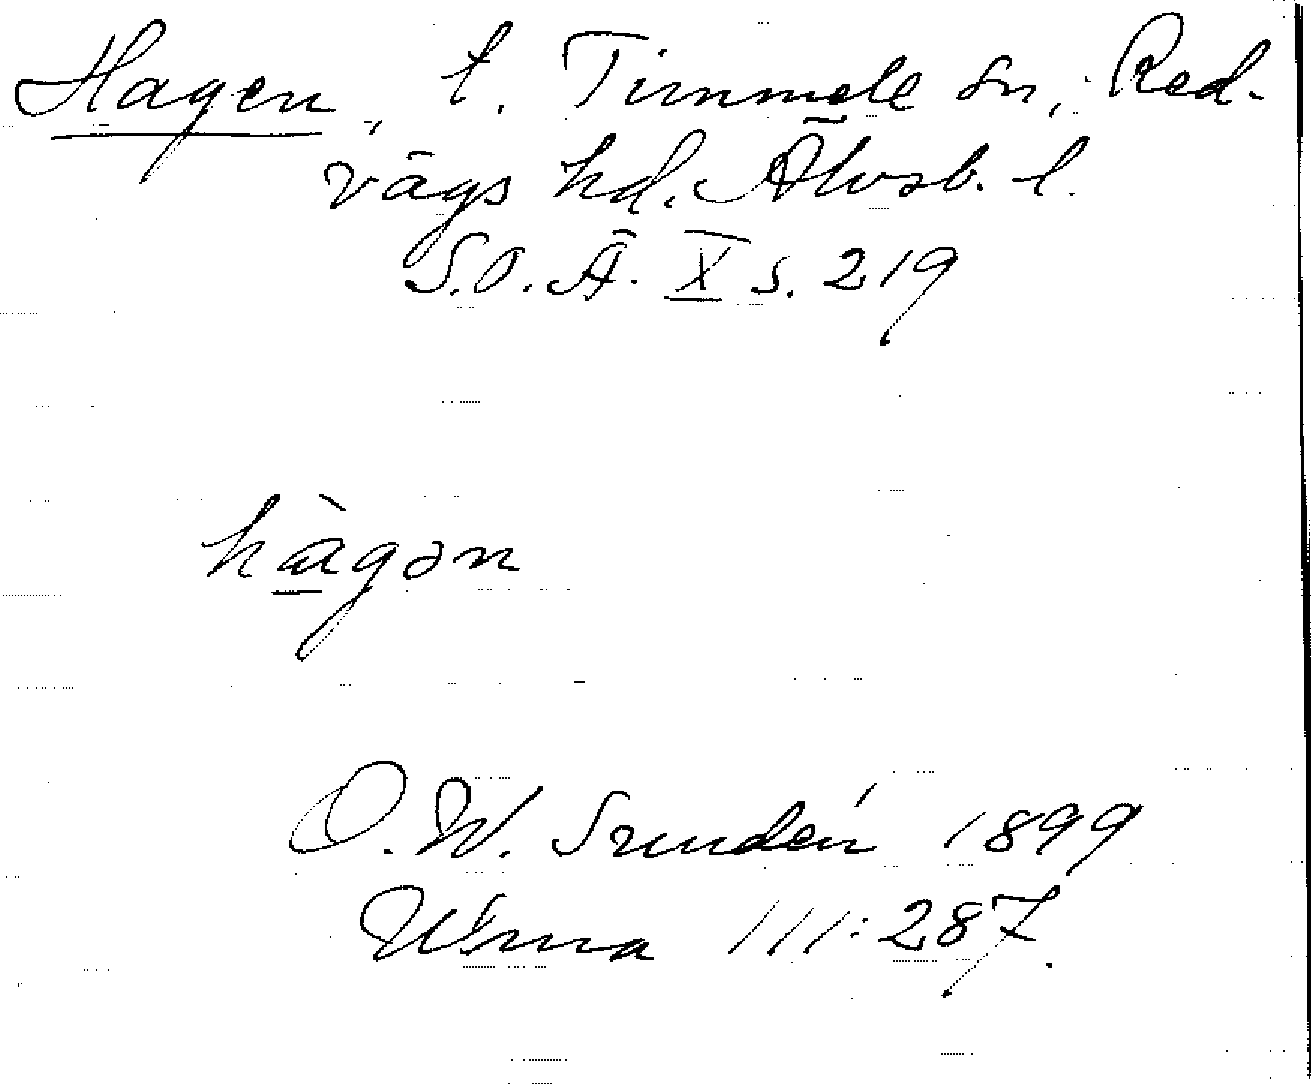 Hagen, t. Timmele sn, Red-
vägs hd. Älvsb. l.
S.O.Ä. X s. 219
hàgən
O.W. Sundén 1899
111:287.